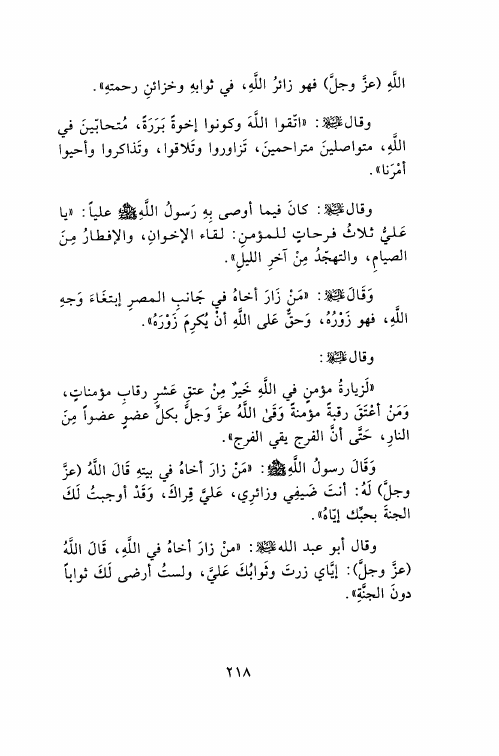 اللَّهِ (عزَّ وجلَّ) فهو زائرُ اللَّهِ، في ثوابهِ وخزائنِ رحمتهِ».
وقال عليه السلام: «اتّقوا اللَّهَ وكونوا إخوةً بَرَرَةً، مُتحابّينَ في
اللَّهِ، متواصلينَ متراحمينَ، تَزاوروا وتَلاقوا، وتَذاكروا وأحيوا
أمْرَنا».
وقال عليه السلام: كانَ فيما أوصى بِهِ رَسولُ اللَّهِ ﷺ علياً: «يا
عَليُّ ثلاثُ فرحاتٍ للمؤمنِ: لقاء الإخوانِ، والإفطارُ مِنَ
الصيامِ، والتهجّدُ مِنْ آخرِ الليلِ».
وَقَالَ عليه السلام: «مَنْ زَارَ أخاهُ في جَانبِ المصرِ إبتغَاءَ وَجهِ
اللَّهِ، فهو زَوْرُهُ، وَحقٌّ عَلى اللَّهِ أنْ يُكرِمَ زَوْرَهُ».
وقال عليه السلام:
«لَزيارةُ مؤمنٍ في اللَّهِ خَيرٌ مِنْ عتقِ عَشرِ رقابٍ مؤمناتٍ،
وَمَنْ أعْتَقَ رقبةً مؤمنةً وَقَىٰ اللَّهُ عزَّ وَجلَّ بكلِّ عضوٍ عضواً مِنَ
النارِ، حَتَّى أنَّ الفرج يقي الفرج».
وَقَالَ رسولُ اللَّهِ ﷺ: «مَنْ زارَ أخاهُ في بيتهِ قَالَ اللَّهُ (عزَّ
وجلَّ) لَهُ: أنتَ ضَيفِي وزائرِي، عَليَّ قِراكَ، وَقَدْ أوجبتُ لَكَ
الجنةَ بحبِّك إيّاهُ».
وقال أبو عبد الله عليه السلام: «منْ زارَ أخاهُ في اللَّهِ، قَالَ اللَّهُ
(عزَّ وجلَّ): إيَّاي زرتَ وثَوابُكَ عَليَّ، ولستُ أرضى لَكَ ثواباً
دونَ الجنَّةِ».
٢١٨